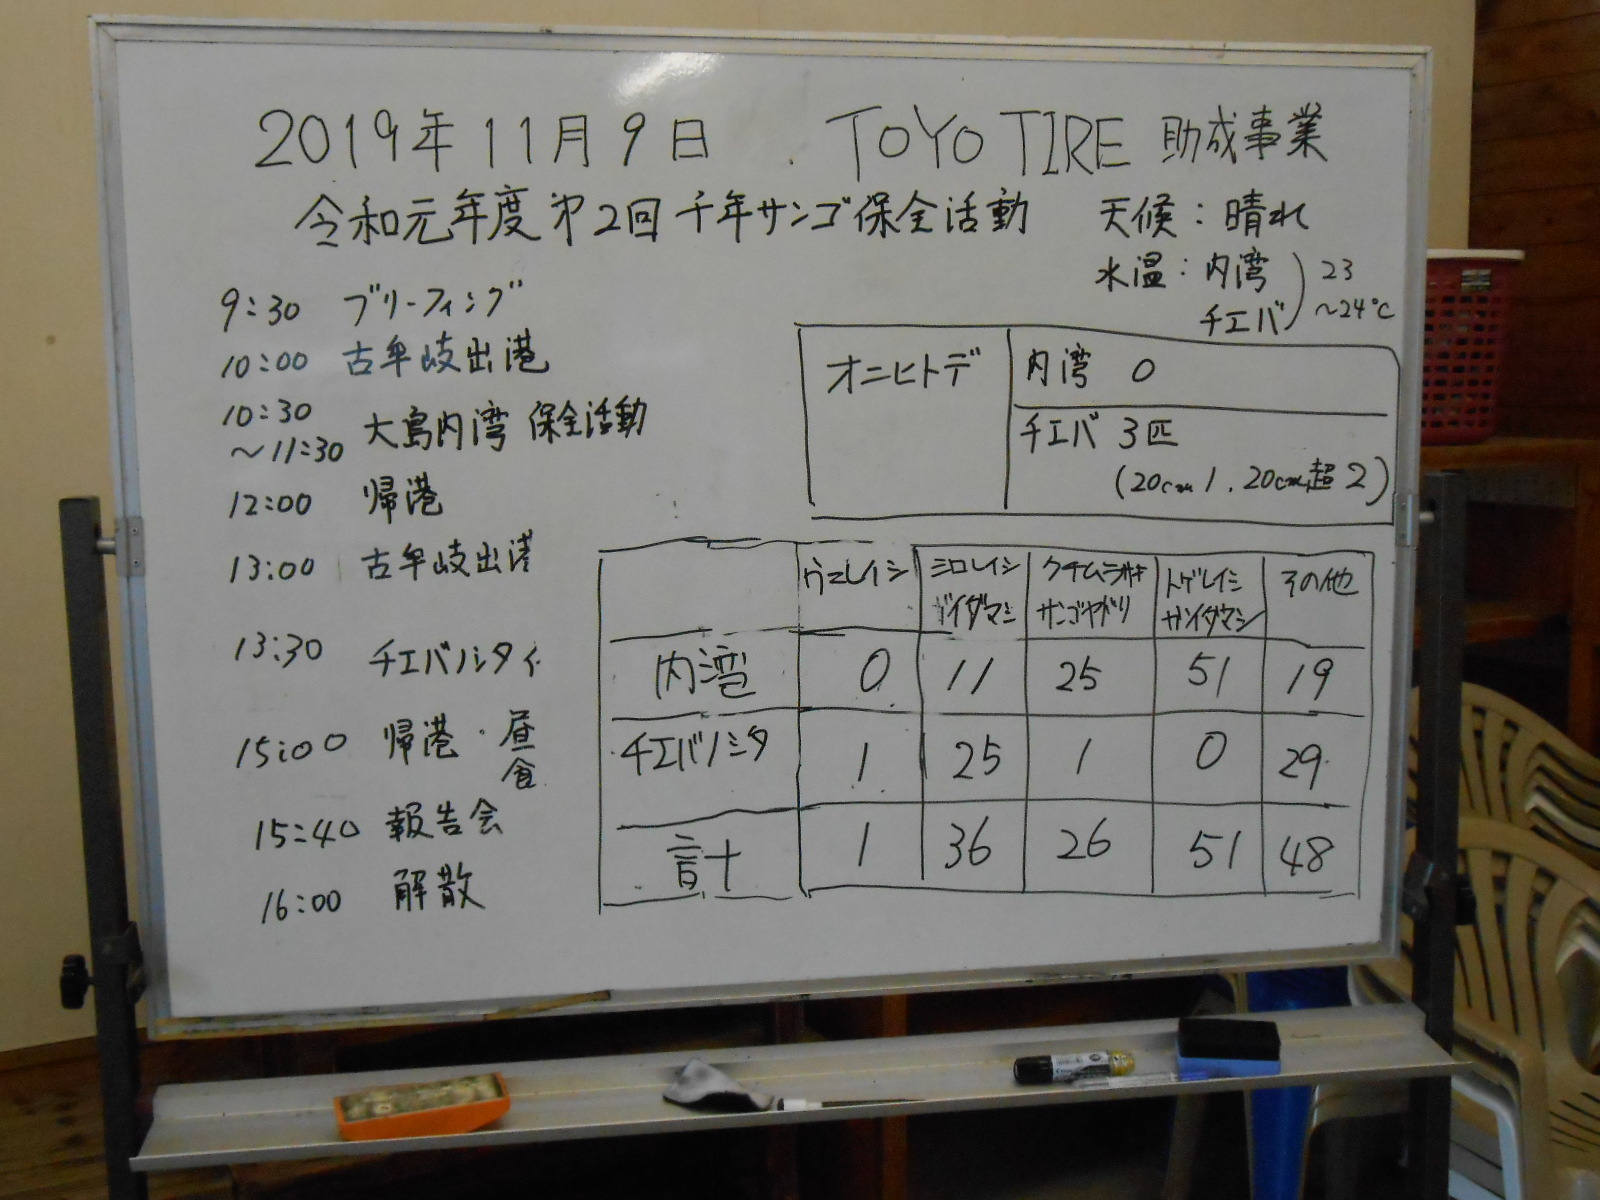 2019年11月9日 TOYO TIRE 助成事業
令和元年度 第2回 千年サンゴ保全活動
天候：晴れ
水温：内湾 チエバ 23〜24℃
9:30 ブリーフィング
10:00 古牟岐出港
10:30〜11:30 大島内湾 保全活動
12:00 帰港
13:00 古牟岐出港
13:30 チエバノシタへ
15:00 帰港・昼食
15:40 報告会
16:00 解散
オニヒトデ 内湾 0
チエバ 3匹
(20cm 1. 20cm超 2)
シロレイシガイダマシ クチムラサキサンゴヤドリ トゲレイシガイダマシ その他
内湾 0 11 25 51 19
チエバノシタ 1 25 1 0 29
計 1 36 26 51 48